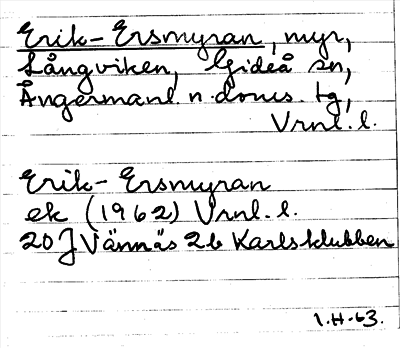 Erik-Ersmyran, myr,
Långviken, Gideå sn,
Ångermanl. n. doms. tg,
Vrnl. l.
Erik-Ersmyran
ek (1962) Vrnl. l.
20 J Vännäs 2b Karlsklubben
1.H.63.